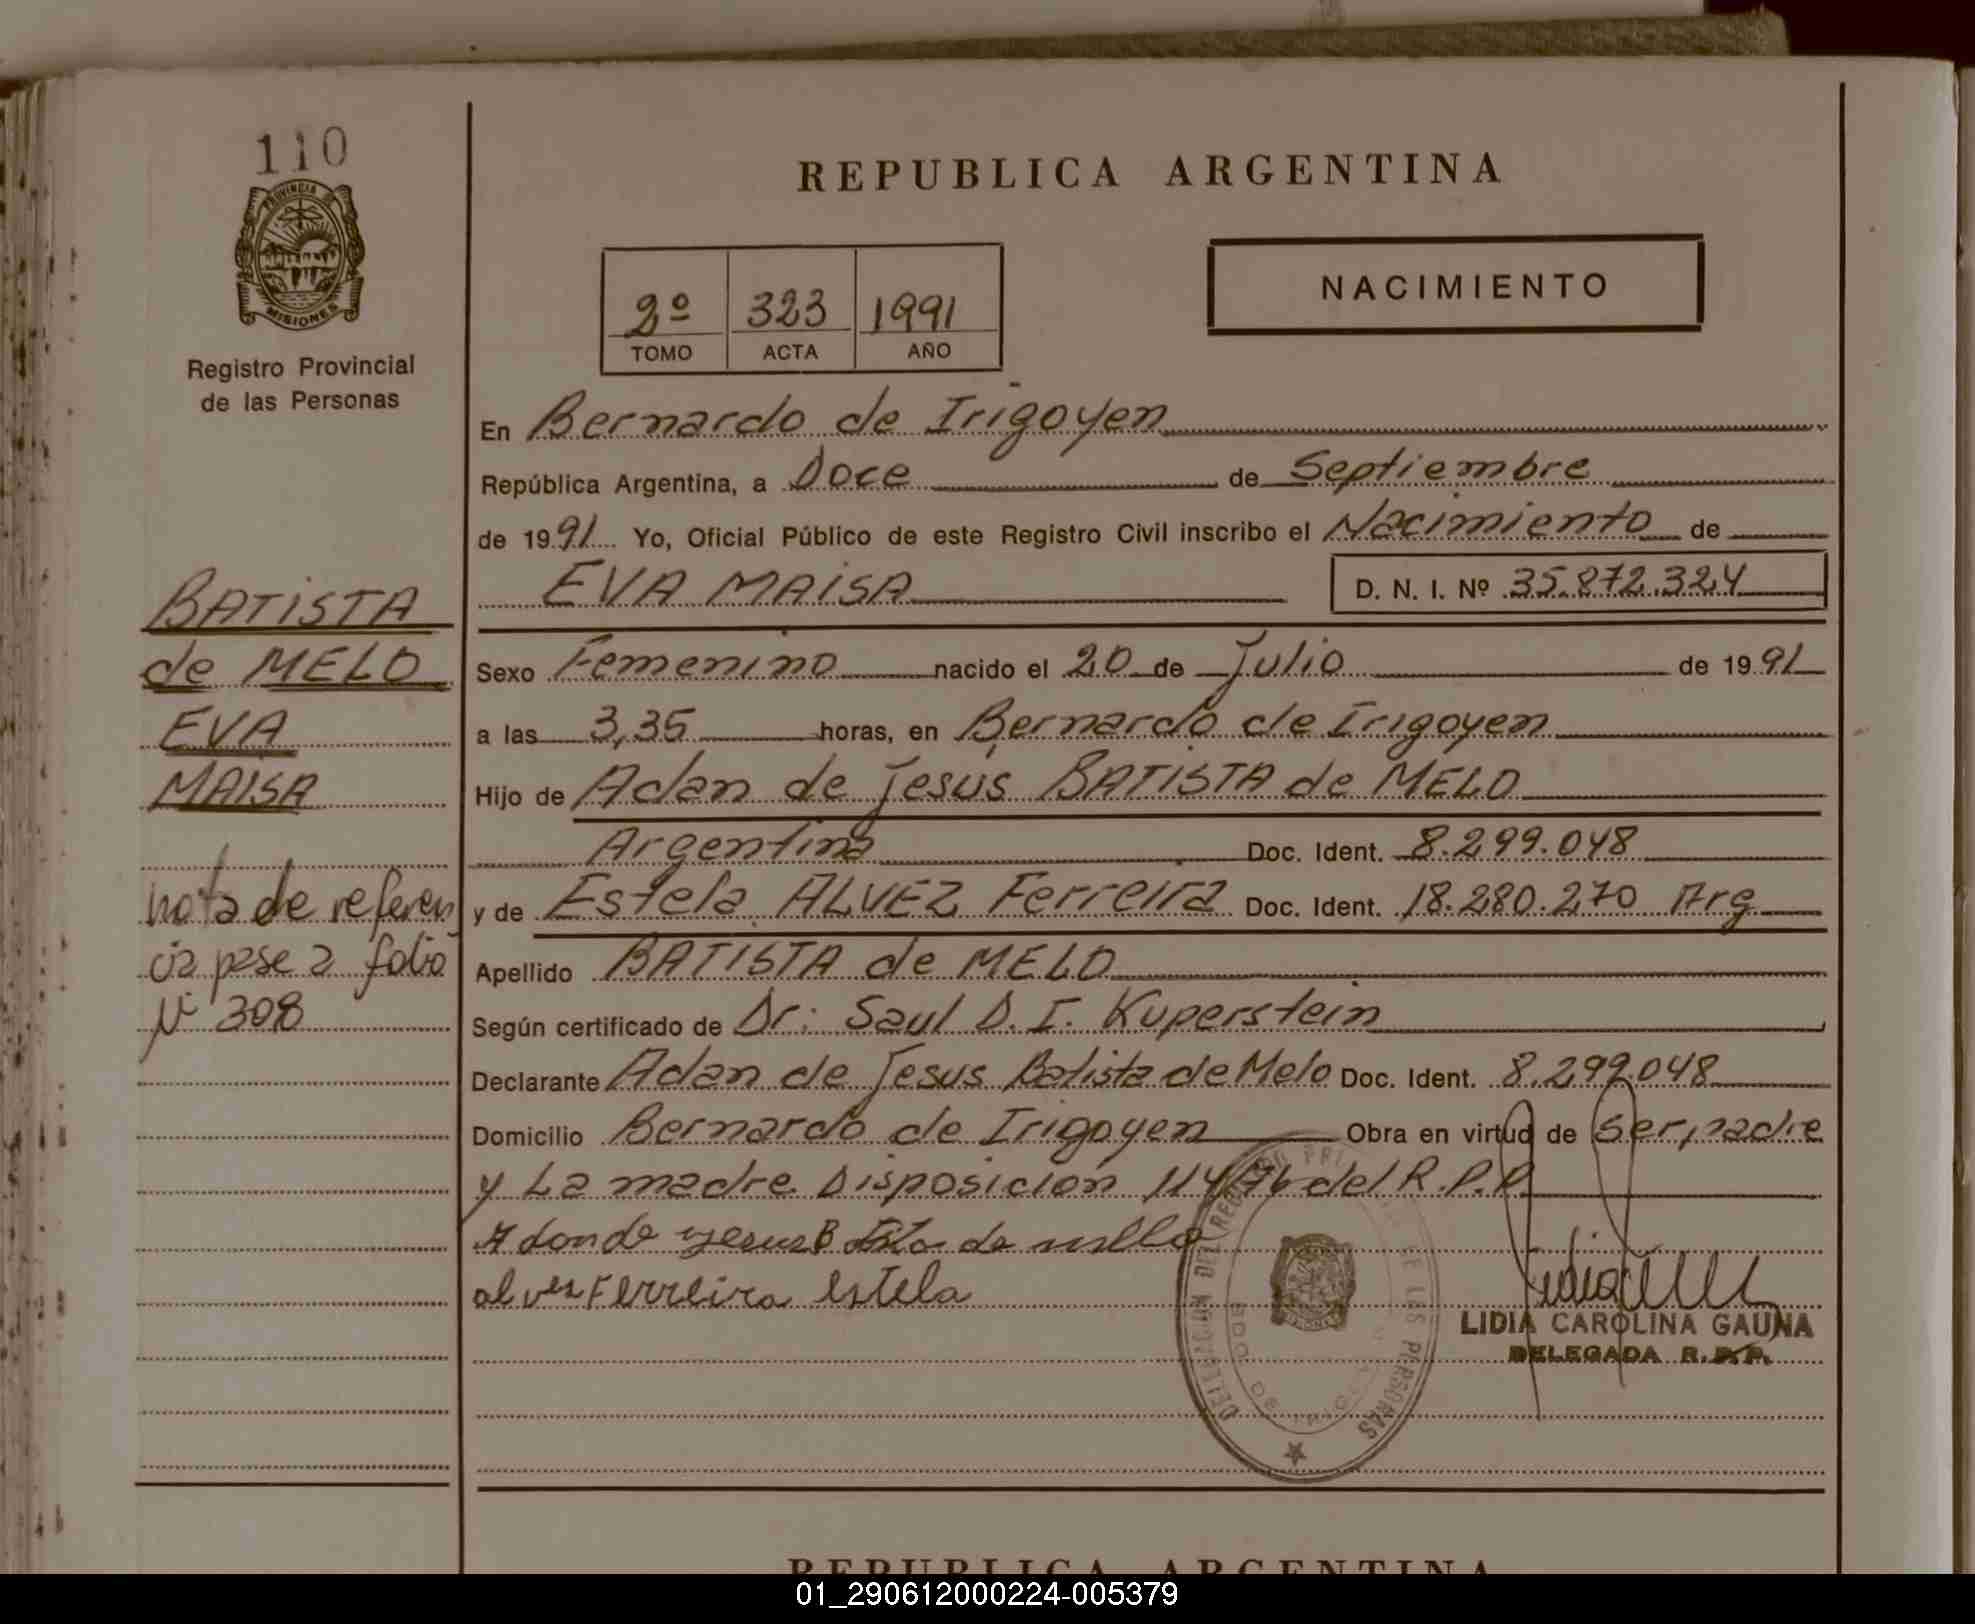 110
PROVINCIA DE
MISIONES
Registro Provincial
de las Personas
BATISTA
de MELO
EVA
MAISA
nota de referen
cia pase a folio
Nº 308
REPUBLICA ARGENTINA
2º 323 1991
TOMO ACTA AÑO
NACIMIENTO
En Bernardo de Irigoyen
República Argentina, a Doce de Septiembre
de 1991 Yo, Oficial Público de este Registro Civil inscribo el Nacimiento de
EVA MAISA D. N. I. Nº 35.872.324
Sexo Femenino nacido el 20 de Julio de 1991
a las 3,35 horas, en Bernardo de Irigoyen
Hijo de Adan de Jesus BATISTA de MELO
Argentina Doc. Ident. 8.299.048
y de Estela ALVEZ Ferreira Doc. Ident. 18.280.270 Arg
Apellido BATISTA de MELO
Según certificado de Dr: Saul D. I. Kuperstein
Declarante Adan de Jesus Batista de Melo Doc. Ident. 8.299.048
Domicilio Bernardo de Irigoyen Obra en virtud de ser padre
y La madre Disposicion 114/76 del R.P.P
de
alvez Ferreira Estela
DELEGACION DEL REGISTRO PROVINCIAL DE LAS PERSONAS
BDO. DE IRIGOYEN
LIDIA CAROLINA GAUNA
DELEGADA R.P.P.
REPUBLICA ARGENTINA
01_290612000224-005379